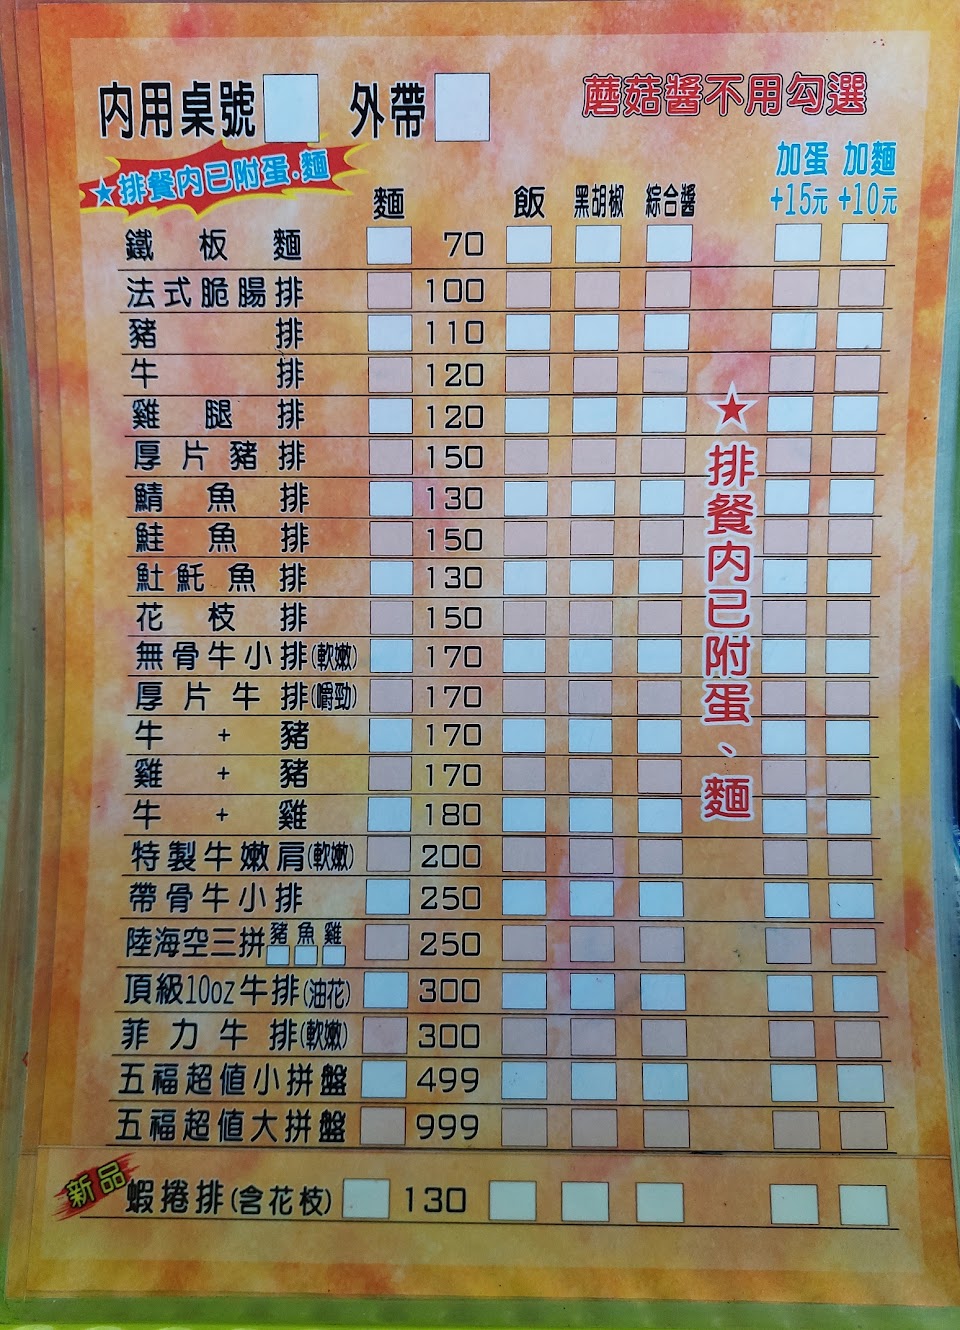 內用桌號 外帶 蘑菇醬不用勾選
★排餐內已附蛋.麵
加蛋 加麵
麵 飯 黑胡椒 綜合醬 +15元 +10元
鐵板麵 70
法式脆腸排 100
豬排 110
牛排 120
雞腿排 120
厚片豬排 150
鯖魚排 130
鮭魚排 150
魠魚排 130
花枝排 150
無骨牛小排(軟嫩) 170
厚片牛排(嚼勁) 170
牛+豬 170
雞+豬 170
牛+雞 180
特製牛嫩肩(軟嫩) 200
帶骨牛小排 250
陸海空三拼 豬 魚 雞 250
頂級10oz牛排(油花) 300
菲力牛排(軟嫩) 300
五福超值小拼盤 499
五福超值大拼盤 999
★排餐內已附蛋、麵
新品 蝦捲排(含花枝) 130